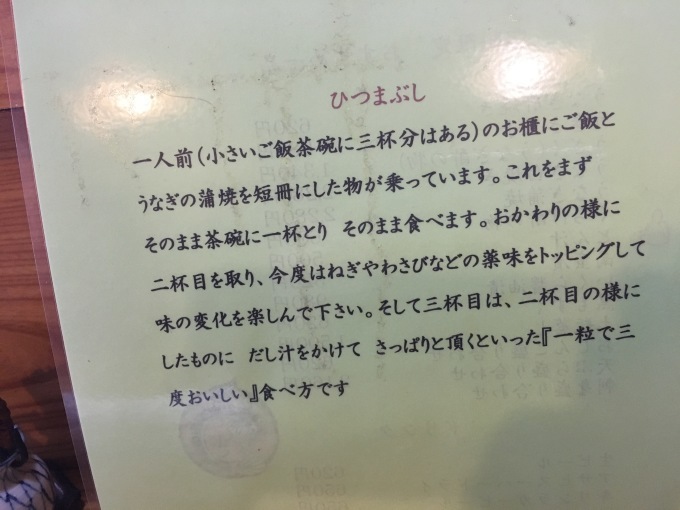 ひつまぶし
一人前(小さいご飯茶碗に三杯分はある)のお櫃にご飯と
うなぎの蒲焼を短冊にした物が乗っています。これをまず
そのまま茶碗に一杯とり そのまま食べます。おかわりの様に
二杯目を取り、今度はねぎやわさびなどの薬味をトッピングして
味の変化を楽しんで下さい。そして三杯目は、二杯目の様に
したものに だし汁をかけて さっぱりと頂くといった『一粒で三
度おいしい』食べ方です